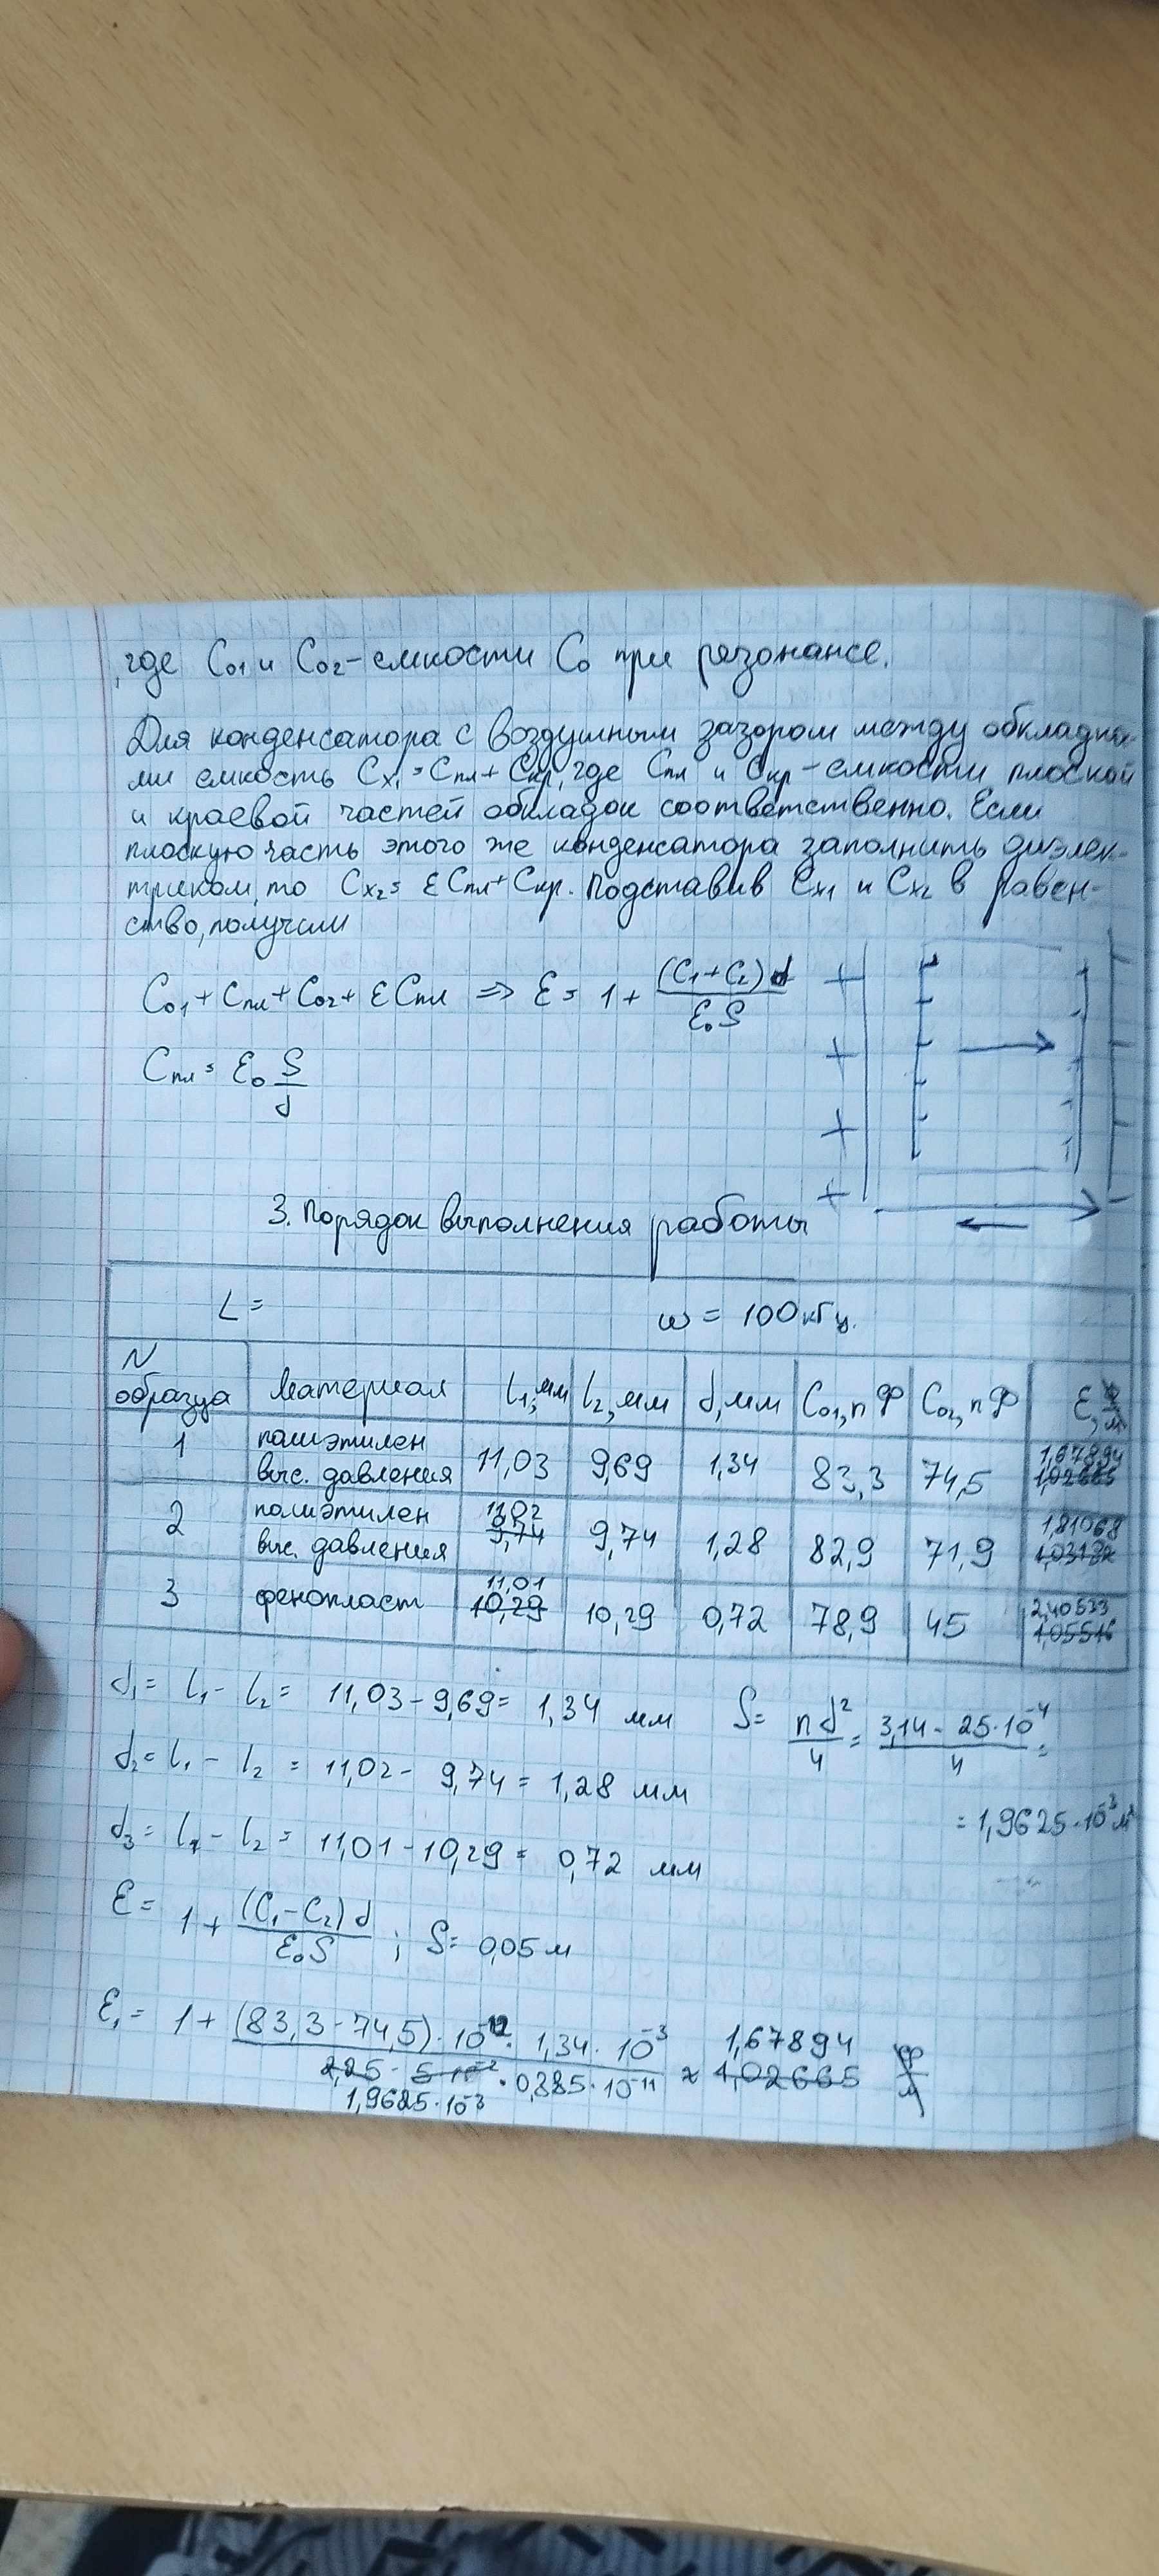 где C01 и C02 – емкости C0 при резонансе.
Для конденсатора с воздушным зазором между обкладка-
ми емкость Cx1 = Cпл + Cкр, где Cпл и Cкр – емкости плоской
и краевой частей обкладок соответственно. Если
плоскую часть этого же конденсатора заполнить диэлек-
триком, то Cx2 = εCпл + Cкр. Подставив Cx1 и Cx2 в равен-
ство, получим
C01 + Cпл + C02 + εCпл => ε = 1 + (C1 + C2) d / ε0 S
Cпл = ε0 S / d
+ + + +
3. Порядок выполнения работы
L = ω = 100 кГц.
N образца | Материал | l1, мм | l2, мм | d, мм | C01, пФ | C02, пФ | ε,
1 | полиэтилен выс. давления | 11,03 | 9,69 | 1,34 | 83,3 | 74,5 | 1,67894 1,02665
2 | полиэтилен выс. давления | 11,02 9,74 | 9,74 | 1,28 | 82,9 | 71,9 | 1,81068
3 | фенопласт | 11,01 10,29 | 10,29 | 0,72 | 78,9 | 45 | 2,40533 1,05516
d1 = l1 - l2 = 11,03 - 9,69 = 1,34 мм
S = πd² / 4 = 3,14 · 25·10⁻⁴ / 4 =
= 1,9625·10⁻³ м²
d2 = l1 - l2 = 11,02 - 9,74 = 1,28 мм
d3 = l1 - l2 = 11,01 - 10,29 = 0,72 мм
ε = 1 + (C1 - C2) d / ε0 S ; S = 0,05 м
ε1 = 1 + (83,3 - 74,5) · 10⁻¹² · 1,34 · 10⁻³ / 1,9625·10⁻³ · 0,885·10⁻¹¹ ≈ 1,67894 1,02665